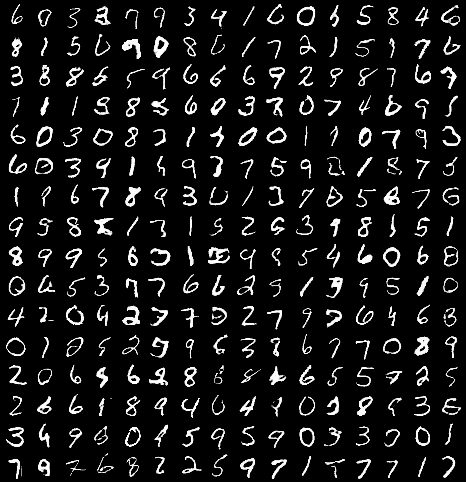 6 0 3 8 7 9 3 4 1 6 0 5 8 4 6
8 1 5 0 9 0 8 6 1 7 2 1 5 9 7 6
3 8 8 5 5 9 6 6 6 9 2 9 8 7 6 7
1 1 1 9 8 5 6 0 3 8 0 7 4 6 9 5
6 0 3 0 8 3 1 4 0 0 1 1 0 7 9 3
6 0 3 9 1 4 9 3 7 5 9 2 1 8 7 5
1 9 6 7 8 9 3 0 1 3 7 8 5 6 7 6
9 5 8 8 1 3 1 5 2 5 3 9 8 1 5 1
8 9 9 5 6 3 1 5 9 9 5 4 6 0 6 8
0 6 5 3 7 7 6 6 2 5 1 3 9 5 1 0
4 2 0 9 2 7 7 0 2 7 9 7 6 4 6 3
0 1 0 5 2 5 9 6 3 8 6 7 7 0 8 9
2 0 6 5 6 2 8 8 8 6 5 5 7 2 5
2 6 6 1 8 9 4 0 4 9 0 3 8 9 3 5
3 4 9 0 0 9 5 9 5 9 0 3 3 0 0 1
7 9 7 6 8 2 2 5 9 7 1 7 7 7 1 7